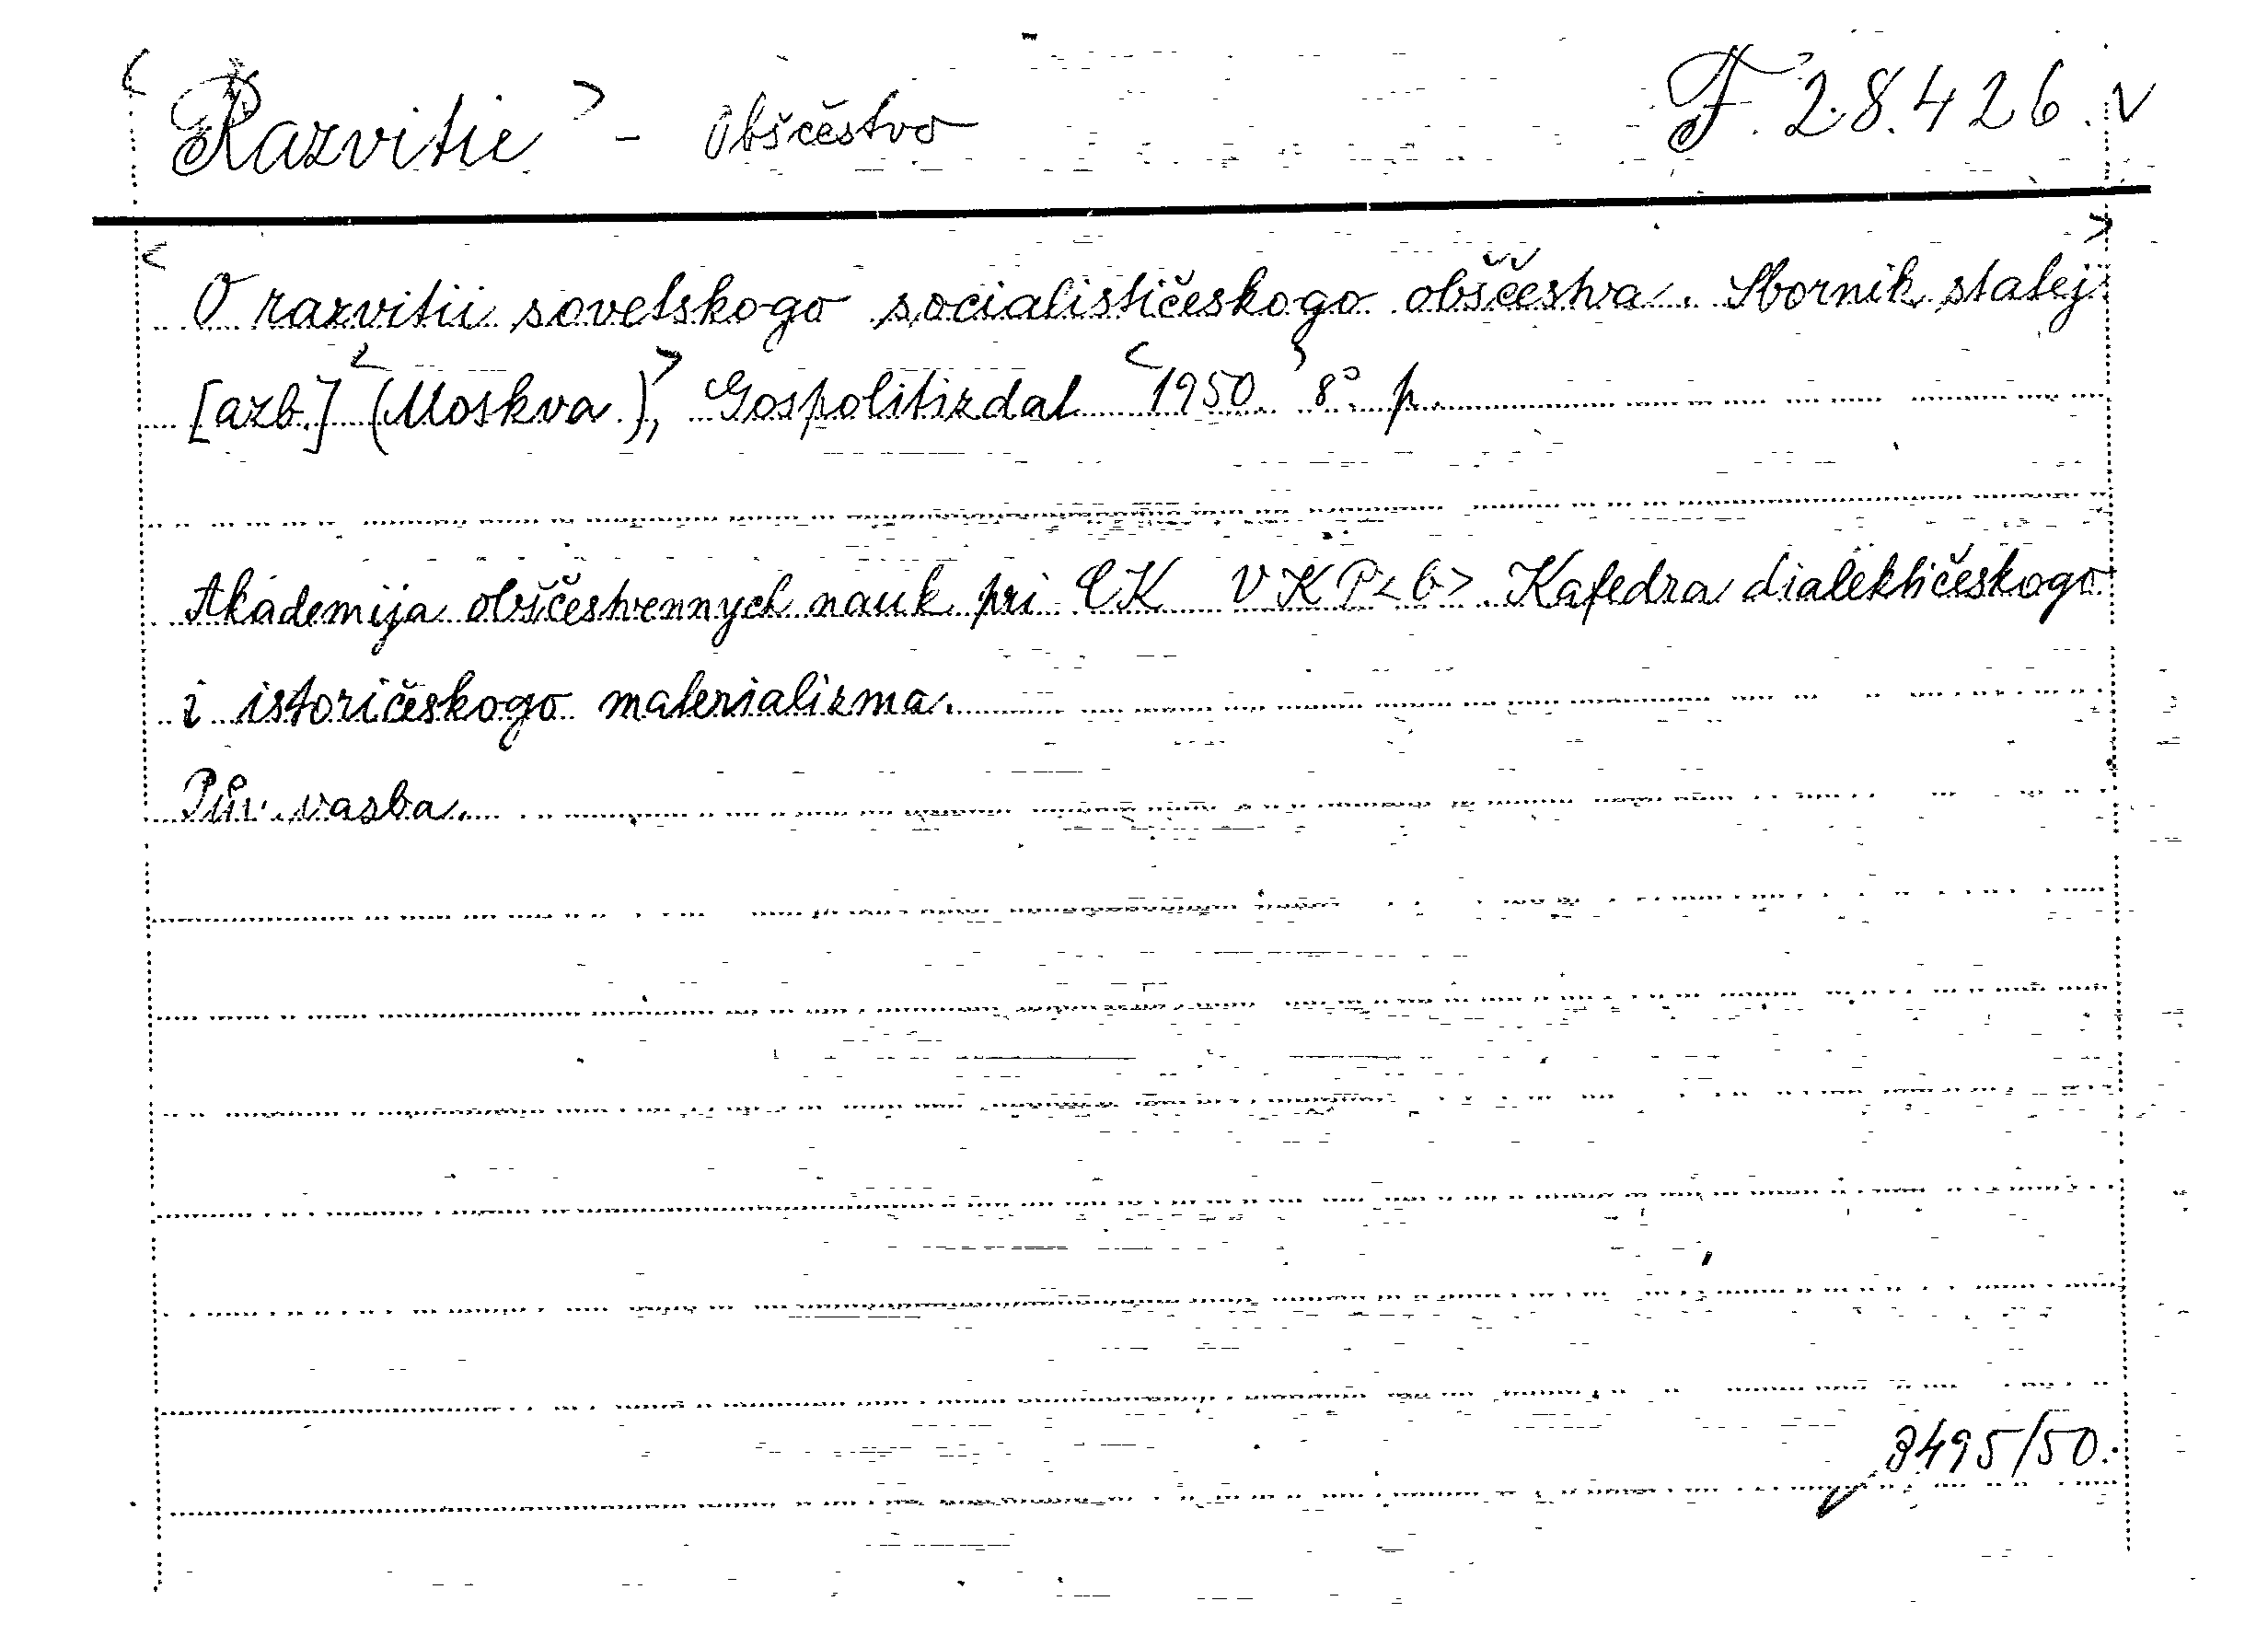 <Razvitie> - Obščestvo F. 28.426. v
<O razvitii sovetskogo socialističeskogo obščestva. Sbornik statej>
[azb.] <(Moskva)>, Gospolitizdat <1950> 8° p.
Akademija obščestvennych nauk pri CK VKP<b>. Kafedra dialektičeskogo
i istoričeskogo materializma.
Pův. vazba.
3495/50.